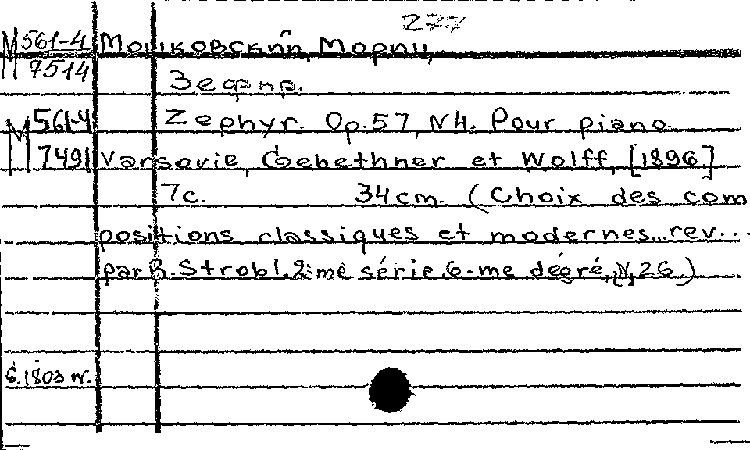 277
М 561-4 Мошковский, Мориц,
7514 Зефир.
М 561-4 Zephyr. Op.57, N4. Pour piano
7491 Varsovie, Gebethner et Wolff, [1896]
7с. 34cm. (Choix des com
positions classiques et modernes...rev...
par R. Strobl. 2-me série. 6-me degré, N, 26)
G. 1803 W.